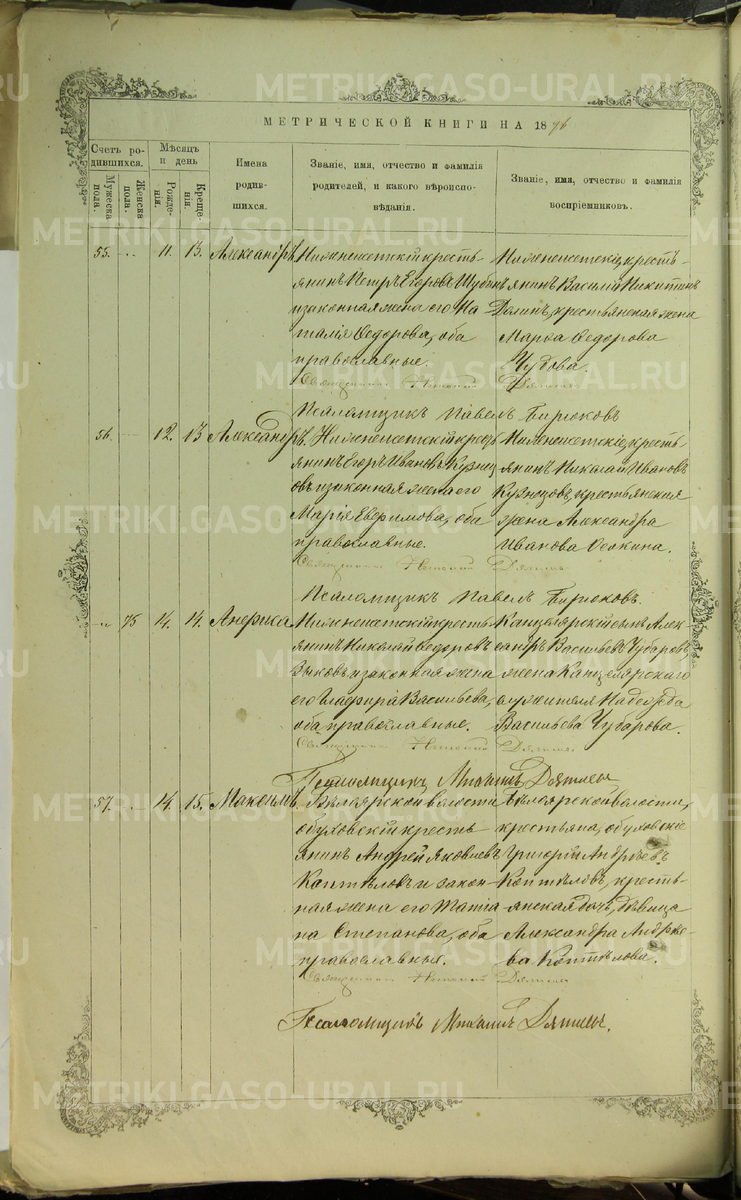 МЕТРИЧЕСКОЙ КНИГИ НА 1876
Счетъ ро-
дившихся.
Мужеска
пола.
Женска
пола.
Мѣсяцъ
и день
Рожде-
нія.
Креще-
нія.
Имена
родив-
шихся.
Званіе, имя, отчество и фамилія
родителей, и какого вѣроиспо-
вѣданія.
Званіе, имя, отчество и фамилія
воспріемниковъ.
55. 11. 13. Александръ
Нижнеисетскій кресть-
янинъ Петръ Егоровъ Шубинъ
и законная жена его На
талія Ѳедорова, оба
православные.
Нижнеисетскіе, кресть-
янинъ Василій Никитинъ
крестьянская жена
Марѳа Ѳедорова
Чубова.
Священникъ
Псаломщикъ Павелъ Бирюковъ
56. 12. 13 Александръ.
Нижнеисетскій кресть
янинъ Егоръ Ивановъ Кузнец
овъ и законная жена его
Марія Евфимова, оба
православные.
Нижнеисетскіе, кресть
янинъ Николай Ивановъ
Кузнецовъ, крестьянская
жена Александра
Иванова Осокина.
Священникъ
Псаломщикъ Павелъ Бирюковъ.
75 14. 14. Анфиса
Нижнеисетскій кресть
янинъ Николай Ѳедоровъ
Зыковъ и законная жена
его Глафира Васильева,
оба православные.
Канцелярскій Алек
сандръ Васильевъ Чубаровъ
жена Канцелярскаго
служителя Надежда
Васильева Чубарова.
Священникъ
Псаломщикъ Михаилъ
57. 14. 15. Максимъ.
Бѣлоярской волости
обуховскій кресть
янинъ Андрей Яковлевъ
Коптѣловъ и закон-
ная жена его Татіа
на Степанова, оба
православные.
Бѣлоярской волости,
крестьяне, обуховскіе
Григорій Андреевъ
Коптѣловъ, кресть-
янская дочь, дѣвица
Александра Андрѣе
ва Коптѣлова.
Священникъ
Псаломщикъ Михаилъ
METRIKI.GASO-URAL.RU